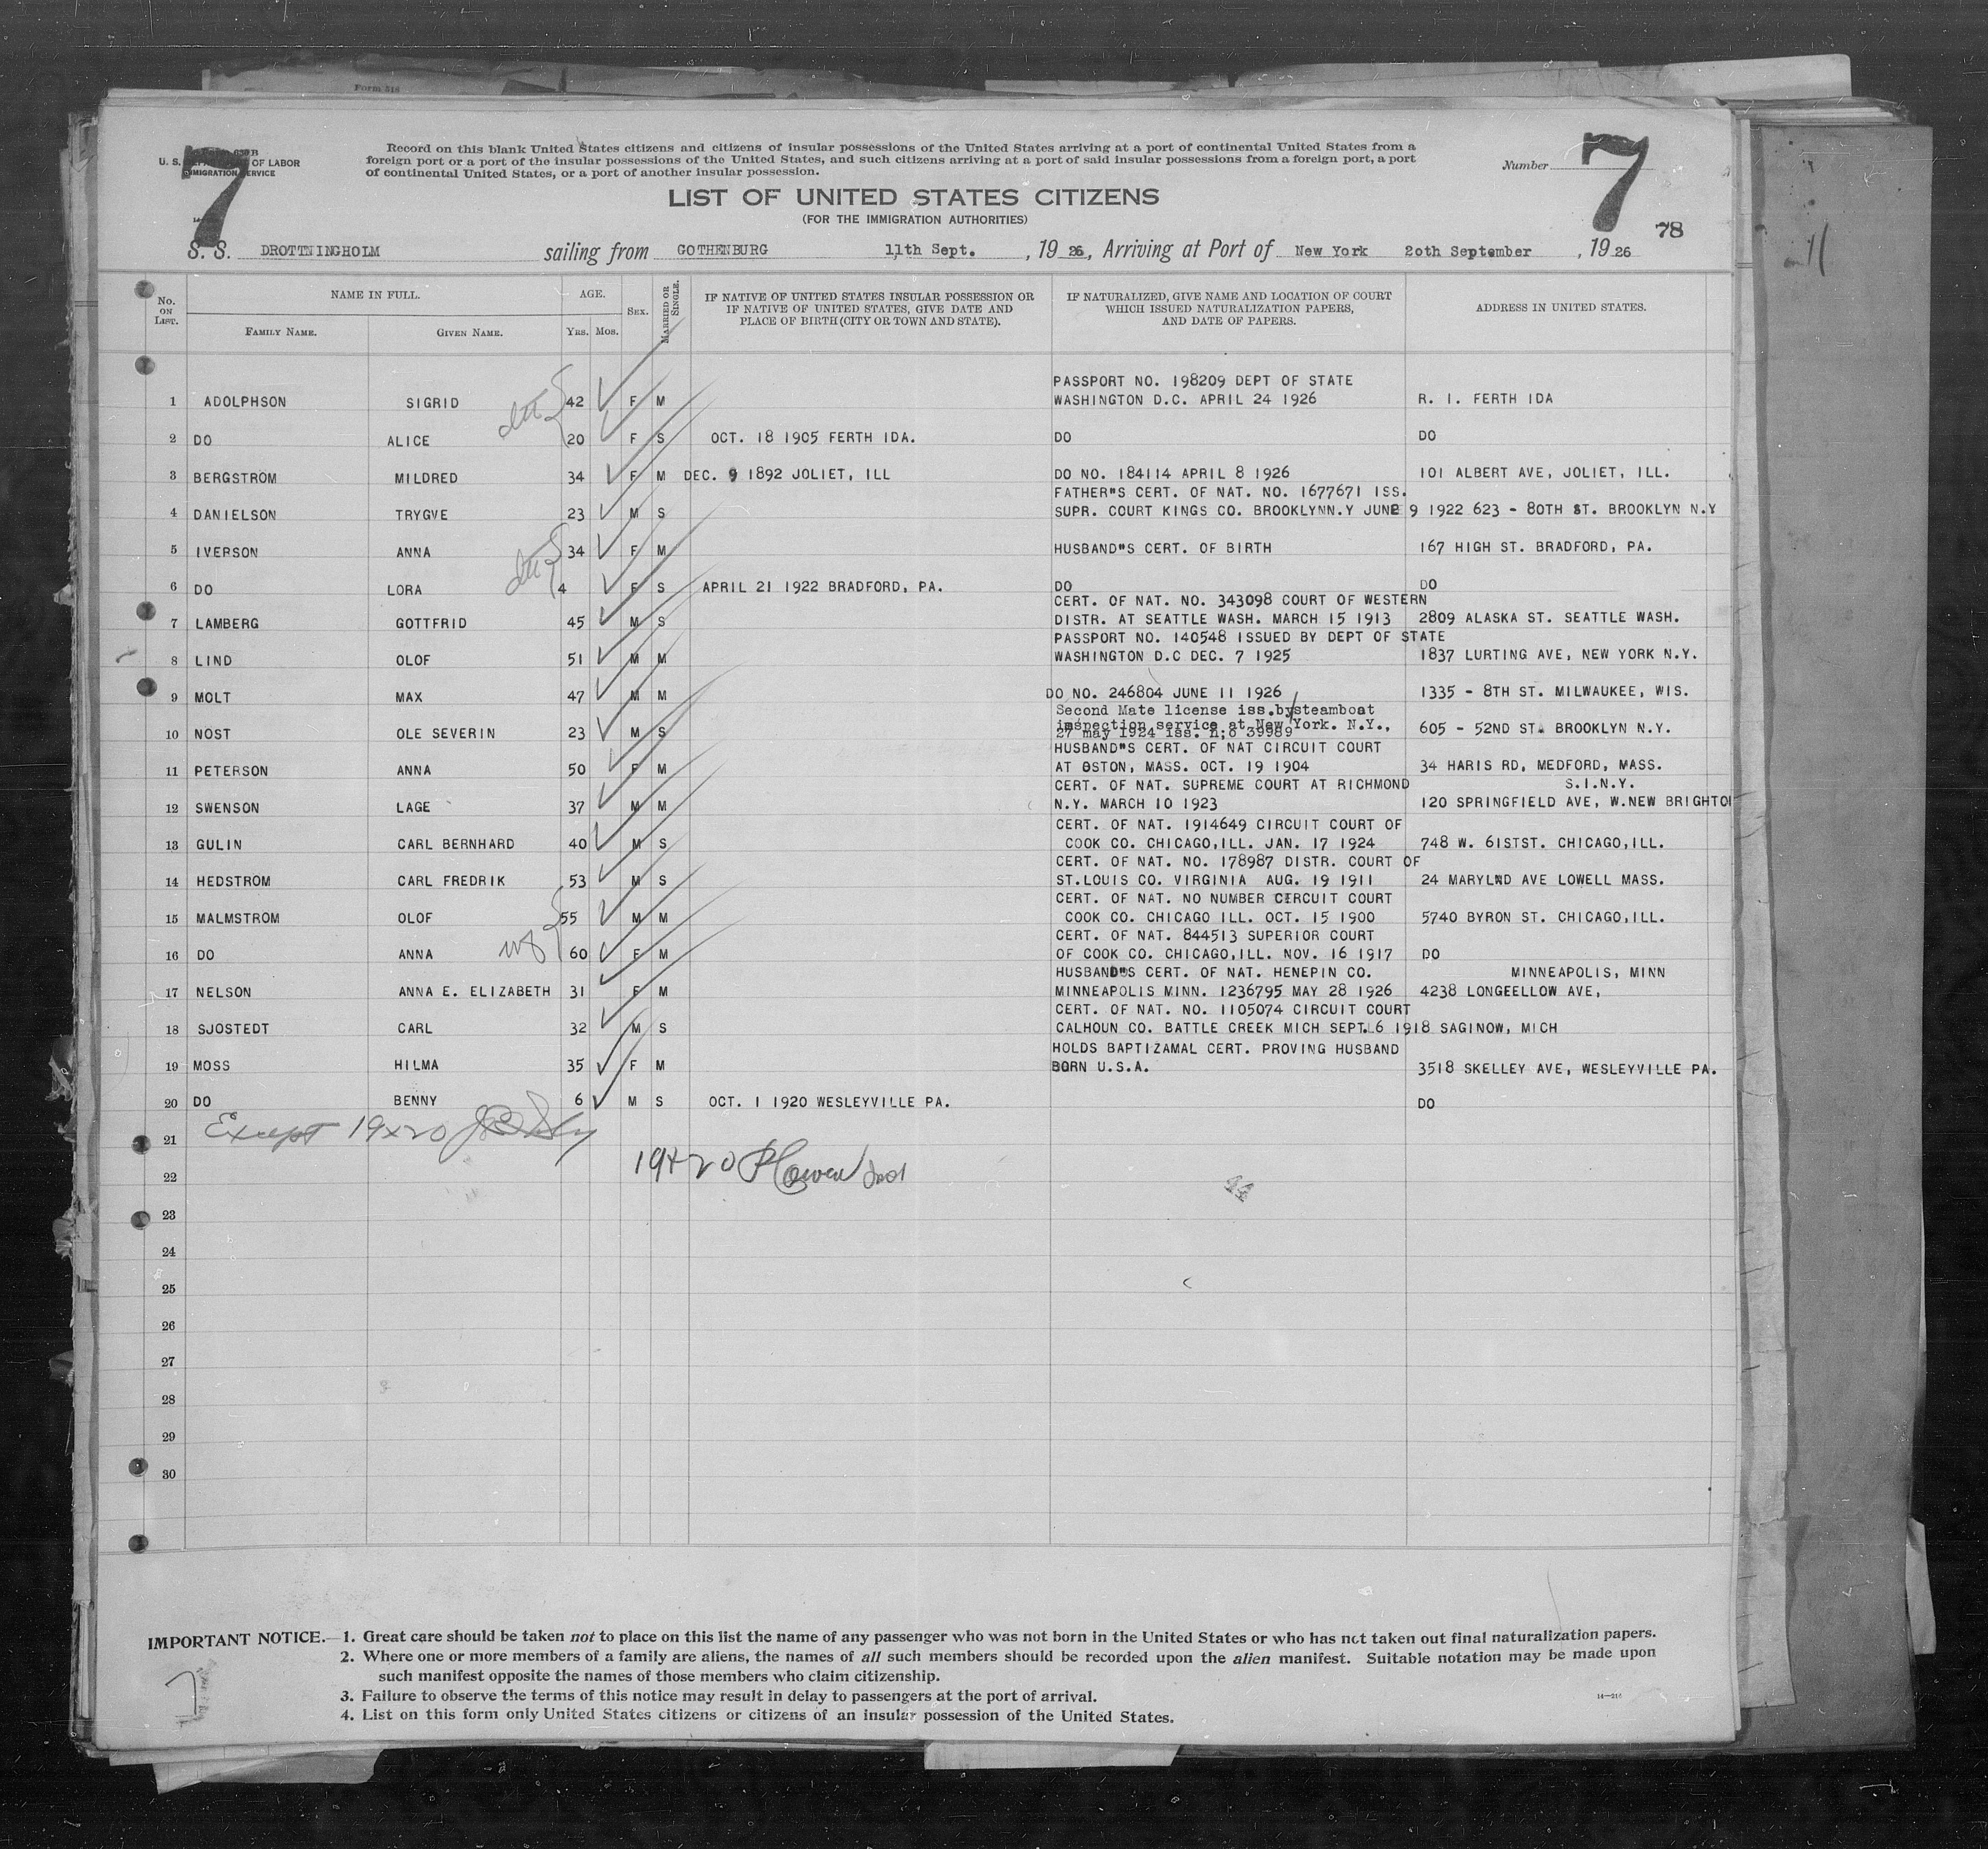 Form 516
7
U. S. DEPARTMENT OF LABOR
IMMIGRATION SERVICE
Record on this blank United States citizens and citizens of insular possessions of the United States arriving at a port of continental United States from a
foreign port or a port of the insular possessions of the United States, and such citizens arriving at a port of said insular possessions from a foreign port, a port
of continental United States, or a port of another insular possession.
Number 7
LIST OF UNITED STATES CITIZENS
(FOR THE IMMIGRATION AUTHORITIES)
78
S. S. DROTTNINGHOLM sailing from GOTHENBURG 11th Sept. , 19 26, Arriving at Port of New York 20th September , 19 26
No. ON LIST. NAME IN FULL. AGE. SEX. MARRIED OR SINGLE. IF NATIVE OF UNITED STATES INSULAR POSSESSION OR IF NATIVE OF UNITED STATES, GIVE DATE AND PLACE OF BIRTH (CITY OR TOWN AND STATE). IF NATURALIZED, GIVE NAME AND LOCATION OF COURT WHICH ISSUED NATURALIZATION PAPERS, AND DATE OF PAPERS. ADDRESS IN UNITED STATES.
FAMILY NAME. GIVEN NAME. YRS. MOS.
PASSPORT NO. 198209 DEPT OF STATE
1 ADOLPHSON SIGRID 42 F M WASHINGTON D.C. APRIL 24 1926 R. 1. FERTH IDA
2 DO ALICE 20 F S OCT. 18 1905 FERTH IDA. DO DO
3 BERGSTROM MILDRED 34 F M DEC. 9 1892 JOLIET, ILL DO NO. 184114 APRIL 8 1926 101 ALBERT AVE, JOLIET, ILL.
FATHER"S CERT. OF NAT. NO. 1677671 ISS.
4 DANIELSON TRYGVE 23 M S SUPR. COURT KINGS CO. BROOKLYNN.Y JUNE 9 1922 623 - 80TH ST. BROOKLYN N.Y
5 IVERSON ANNA 34 F M HUSBAND"S CERT. OF BIRTH 167 HIGH ST. BRADFORD, PA.
6 DO LORA 4 F S APRIL 21 1922 BRADFORD, PA. DO DO
CERT. OF NAT. NO. 343098 COURT OF WESTERN
7 LAMBERG GOTTFRID 45 M S DISTR. AT SEATTLE WASH. MARCH 15 1913 2809 ALASKA ST. SEATTLE WASH.
PASSPORT NO. 140548 ISSUED BY DEPT OF STATE
8 LIND OLOF 51 M M WASHINGTON D.C DEC. 7 1925 1837 LURTING AVE, NEW YORK N.Y.
9 MOLT MAX 47 M M DO NO. 246804 JUNE 11 1926 1335 - 8TH ST. MILWAUKEE, WIS.
Second Mate license iss.bysteamboat
inspection service at New York. N.Y.,
10 NOST OLE SEVERIN 23 M S 27 may 1924 iss. n;o 39989 605 - 52ND ST. BROOKLYN N.Y.
HUSBAND"S CERT. OF NAT CIRCUIT COURT
11 PETERSON ANNA 50 F M AT OSTON, MASS. OCT. 19 1904 34 HARIS RD, MEDFORD, MASS.
CERT. OF NAT. SUPREME COURT AT RICHMOND S.I.N.Y.
12 SWENSON LAGE 37 M M N.Y. MARCH 10 1923 120 SPRINGFIELD AVE, W.NEW BRIGHTO
CERT. OF NAT. 1914649 CIRCUIT COURT OF
13 GULIN CARL BERNHARD 40 M S COOK CO. CHICAGO,ILL. JAN. 17 1924 748 W. 61STST. CHICAGO,ILL.
CERT. OF NAT. NO. 178987 DISTR. COURT OF
14 HEDSTROM CARL FREDRIK 53 M S ST.LOUIS CO. VIRGINIA AUG. 19 1911 24 MARYLND AVE LOWELL MASS.
CERT. OF NAT. NO NUMBER CIRCUIT COURT
15 MALMSTROM OLOF 55 M M COOK CO. CHICAGO ILL. OCT. 15 1900 5740 BYRON ST. CHICAGO,ILL.
CERT. OF NAT. 844513 SUPERIOR COURT
16 DO ANNA 60 F M OF COOK CO. CHICAGO,ILL. NOV. 16 1917 DO
HUSBAND"S CERT. OF NAT. HENEPIN CO. MINNEAPOLIS, MINN
17 NELSON ANNA E. ELIZABETH 31 F M MINNEAPOLIS MINN. 1236795 MAY 28 1926 4238 LONGEELLOW AVE,
CERT. OF NAT. NO. 1105074 CIRCUIT COURT
18 SJOSTEDT CARL 32 M S CALHOUN CO. BATTLE CREEK MICH SEPT.6 1918 SAGINOW, MICH
HOLDS BAPTIZAMAL CERT. PROVING HUSBAND
19 MOSS HILMA 35 F M BORN U.S.A. 3518 SKELLEY AVE, WESLEYVILLE PA.
20 DO BENNY 6 M S OCT. 1 1920 WESLEYVILLE PA. DO
Except 19x20
21
19+20
22
44
23
24
25
26
27
28
29
30
IMPORTANT NOTICE.—1. Great care should be taken not to place on this list the name of any passenger who was not born in the United States or who has not taken out final naturalization papers.
2. Where one or more members of a family are aliens, the names of all such members should be recorded upon the alien manifest. Suitable notation may be made upon
such manifest opposite the names of those members who claim citizenship.
3. Failure to observe the terms of this notice may result in delay to passengers at the port of arrival.
4. List on this form only United States citizens or citizens of an insular possession of the United States.
14—216
7